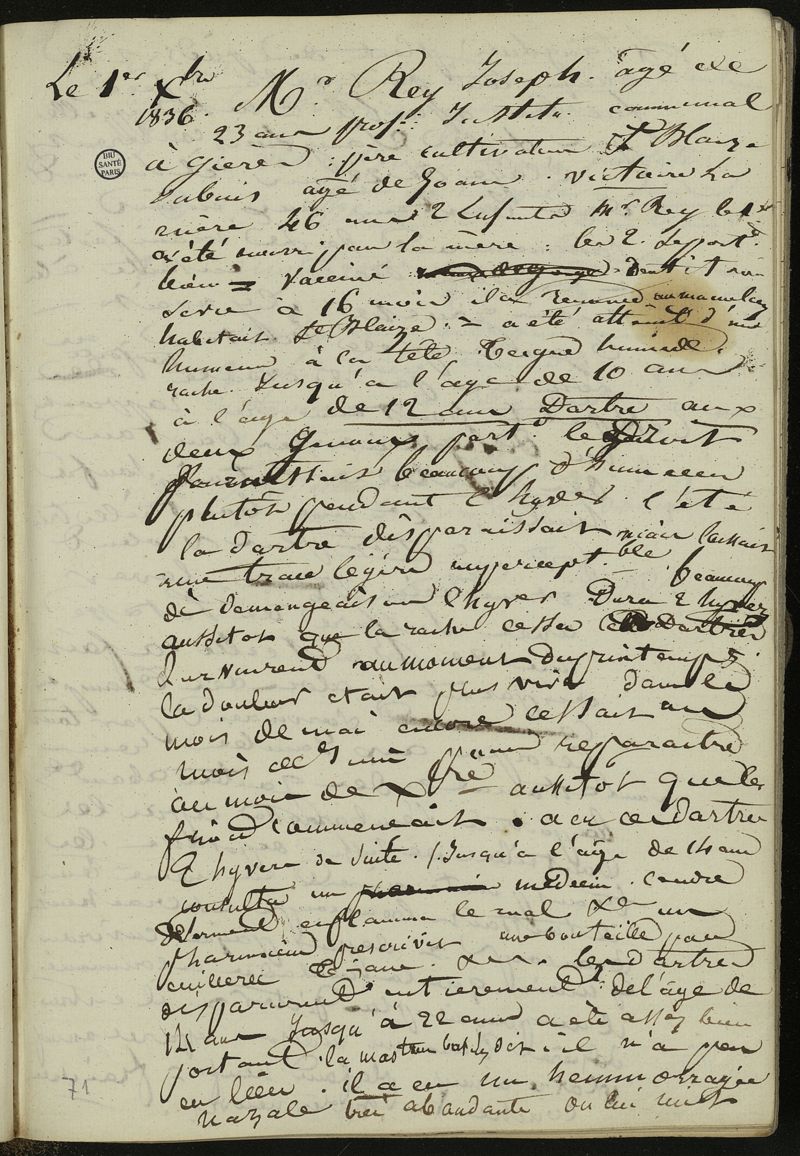 Le 1er Xbre Mr Rey Joseph. âgé de
1836. 23 ans prof. Institu. communal
BIU SANTÉ PARIS
à gières : père cultivateur St Blaize
âgé de 50 ans. victoire La
mère 46 ans 2 Enfants Mr Rey le 1er
a été nourri par la mère : les 2. se porte
bien = vacciné dentition
à 16 mois il a
habitait St Blaize. = a été atteint d'une
humeur à la tête Teigne humide.
rache jusqu'à l'age de 10 ans
à l'age de 12 ans Dartre aux
deux Genoux part. le droit
fournissais beaucoup d'humeur
plutôt pendant l'hyver. l'été
la dartre disparaissait mais laissait
une trace légère impercept.ble beaucoup
de demangeaison l'hyver Dura 2 hyver
aussitot que la rache cessa les Dartres
survinrent au moment du printemps.
la douleur etait plus vive dans le
mois de mai encore cessait au
mois de juin pour reparaitre
au mois de Xbre aussitot que le
froid commencait. a eu ce dartre
2 hyvers de suite. jusqu'à l'age de 14 ans
consulta un medecin. cendre
de sarment enflamma le mal un
pharmacien prescrivit une bouteille par
cuilleree les dartres
disparurent entierement. de l'âge de
14 ans jusqu'à 22 ans a été assez bien
portant. la dit-il n'a pas
eu lieu. il a eu un hemmorragie
nazale très abondante on lui mit
71